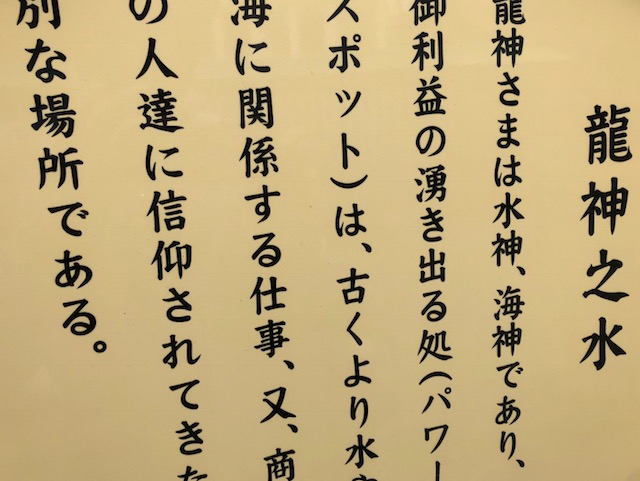 龍神之水
龍神さまは水神、海神であり、
御利益の湧き出る処(パワー
スポット)は、古くより水や
海に関係する仕事、又、商
の人達に信仰されてきた
別な場所である。